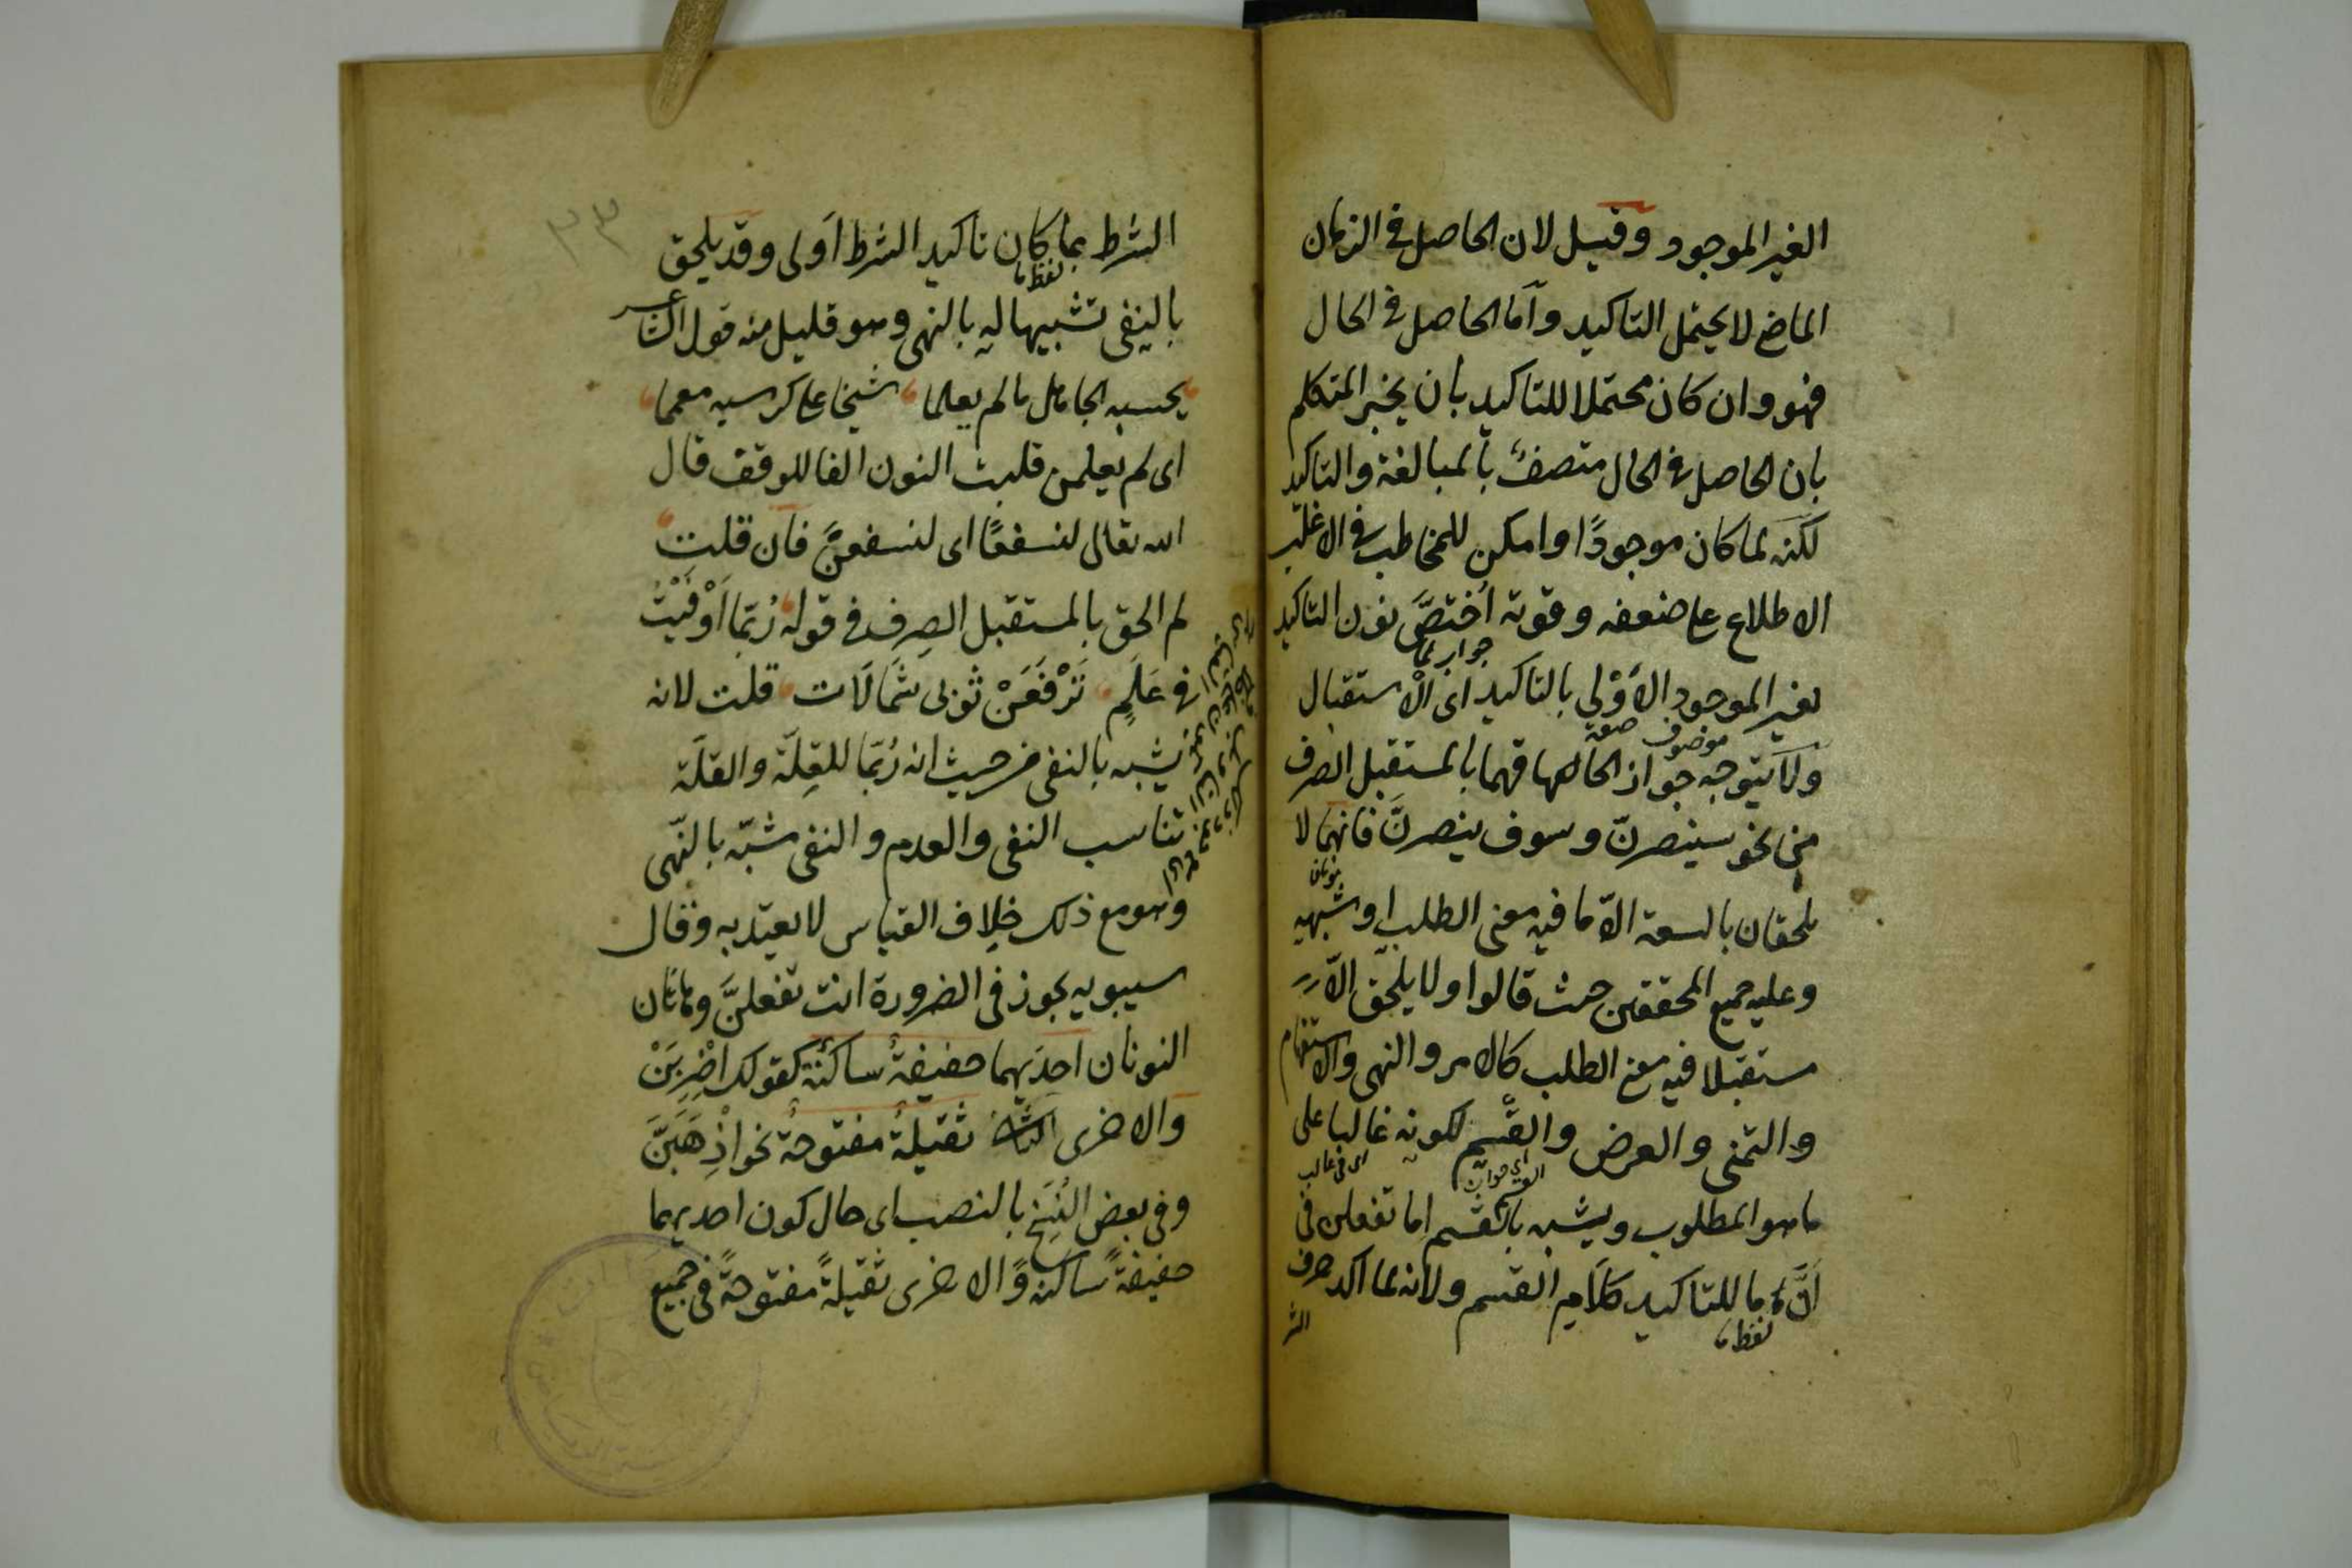 الغير الموجود وقيل لان الحاصل في الزمان
الماضي لا يحتمل التاكيد وآما الحاصل في الحال
فهو وان كان محتملا للتاكيد بان يخبر المتكلم
بان الحاصل في الحال متصفٌ بالمبالغة والتاكيد
لكنّه لما كان موجودًا وامكن للمخاطب في الاغلب
الاطلاع على ضعفه وقوته اُختصَّ نون التاكيد
جواب لما
بغير الموجود الاَوْلى بالتاكيد اى الاستقبال
موصوف صفة
ولا يتوجه جواز الحاقهما بالمستقبل الصرف
من نحو سينصرنّ وسوف ينصرنَّ فانهما لا
يلحقان بالسعة الاّ ما فيه معنى الطلب او شبهه
وعليه جميع المحققين حيث قالوا ولا يلحق الاّ
مستقبلا فيه معنى الطلب كالامر والنهى والاستفهام
والتمنى والعرض والقَسم لكونه غالبا على
اى فى غالب
ما هو المطلوب ويشبه بالقسم اما تفعلن فى
اَنَّ ما للتاكيد كلام القسم ولانه لما اكد حرف
لفظ ما
الشر
٣٣
الشرط بما كان تاكيد الشرط اَولى وقد يلحق
لفظ ما
بالنفى تشبيها له بالنهى وهو قليل منه قول الشاعر
يحسبه الجاهل ما لم يعلما شيخا على كرسيه معمما
اى لم يعلمن قلبت النون الفا للوقف قال
الله تعالى لنسفعًا اى لنسفعنْ فان قلت
لم الحق بالمستقبل الصِرف فى قوله رُبَّما اَوْفَيْتُ
فى عَلَمٍ تَرْفَعَنْ ثوبى شَمَالَات قلت لانه
يشبه بالنفى من حيث انه رُبّما للقِلّة والقلّة
تناسب النفى والعدم والنفى شبّه بالنّهى
وهو مع ذلك خِلاف القياس لا يعتد به وقال
سيبويه يجوز فى الضرورة انت تفعلنَّ وهاتان
النونان احدَيهما خفيفةٌ ساكنة كقولك اضْرِبَنْ
والاخرى ثقيلةٌ مفتوحةٌ نحو اذْهَبَنَّ
وفى بعض النُسَخ بالنصب اى حال كون احديهما
خفيفةً ساكنةً والاخرى ثقيلةً مفتوحةً فى جميع